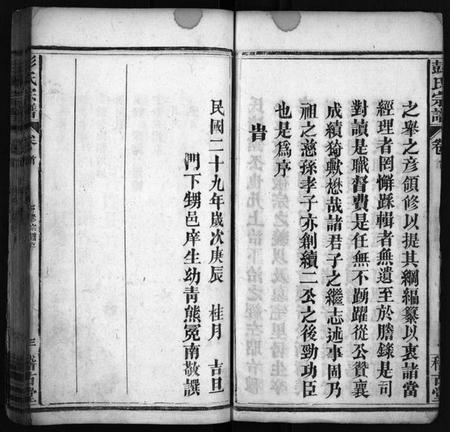 彭氏宗譜
卷首
之舉之彥領修以提其綱編纂以衷諸當
經理者罔懈蒐輯者無遺至於謄錄是司
對讀是職督費是任無不踴躍從公贊襄
成績猗歟懋哉諸君子之繼志述事固乃
祖之慈孫孝子亦創續二公之後勁功臣
也是為序
旹
民國二十九年歲次庚辰 桂月 吉旦
門下甥邑庠生幼青熊冕南敬譔
彭氏宗譜
卷首
三